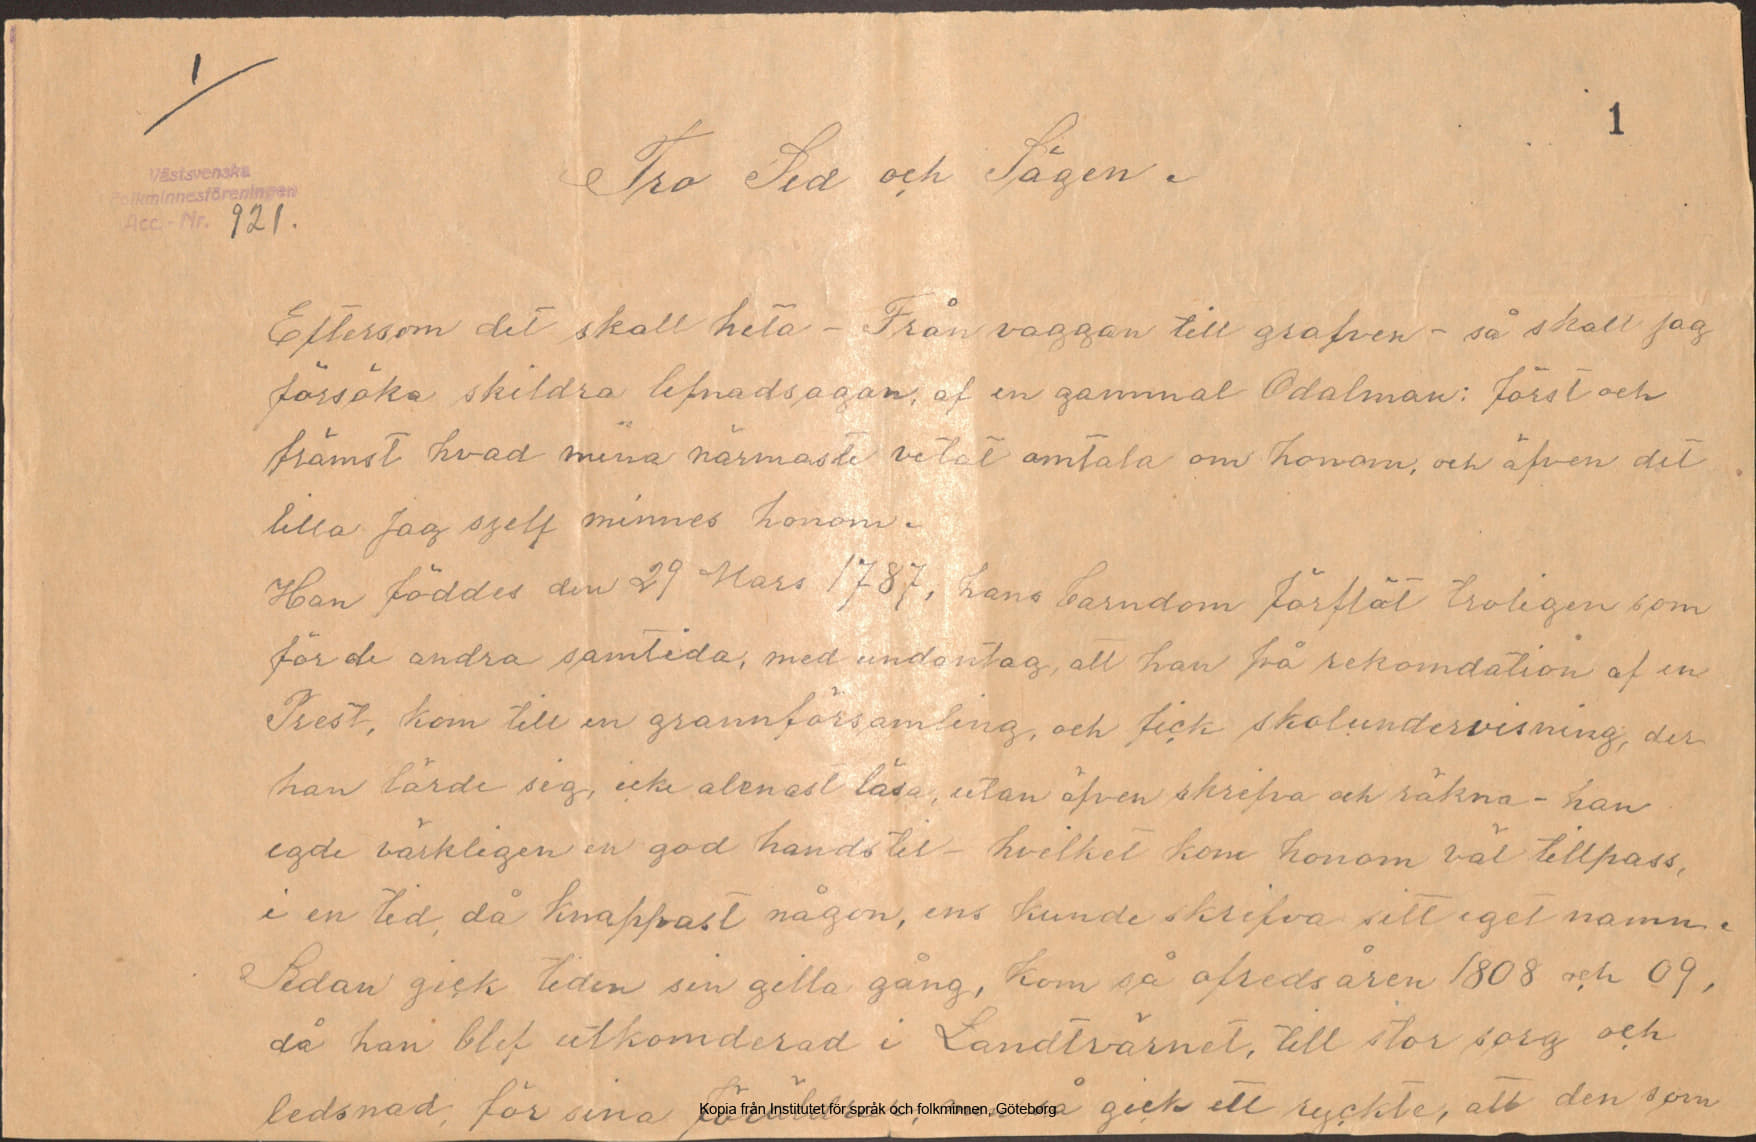 1
1
Västsvenska
Folkminnesföreningen
Acc.-Nr. 921.
Tro Sed och Sägen.
Eftersom det skall heta - Från vaggan till grafven - så skall jag
försöka skildra lefnadsagan, af en gammal Odalman: först och
främst hvad mina närmaste vetat omtala om honom, och äfven det
lilla jag sjelf minnes honom.
Han föddes den 29 Mars 1787, hans barndom förflöt troligen som
för de andra samtida, med undantag, att han på rekomdation af en
Prest, kom till en grannförsamling, och fick skolundervisning, der
han lärde sig, icke alenast läsa, utan äfven skrifva och räkna - han
egde värkligen en god handstil - hvilket kom honom väl tillpass,
i en tid, då knappast någon, ens kunde skrifva sitt eget namn.
Sedan gick tiden sin gilla gång, kom så ofredsåren 1808 och 09,
då han blef utkomderad i Landtvärnet, till stor sorg och
ledsnad, för sina föräldrar, men så gick ett ryckte, att den som
Kopia från Institutet för språk och folkminnen, Göteborg